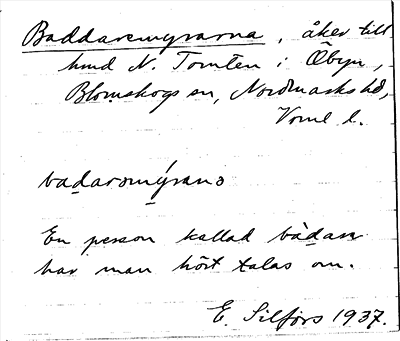 Baddaremyrarna, åker till
hmd N. Tomten i Öbyn,
Blomskogs sn, Nordmarks hd,
Vrml l.
badarəmýranə
En person kallad bàdarn
har man hört talas om.
E. Silfors 1937.